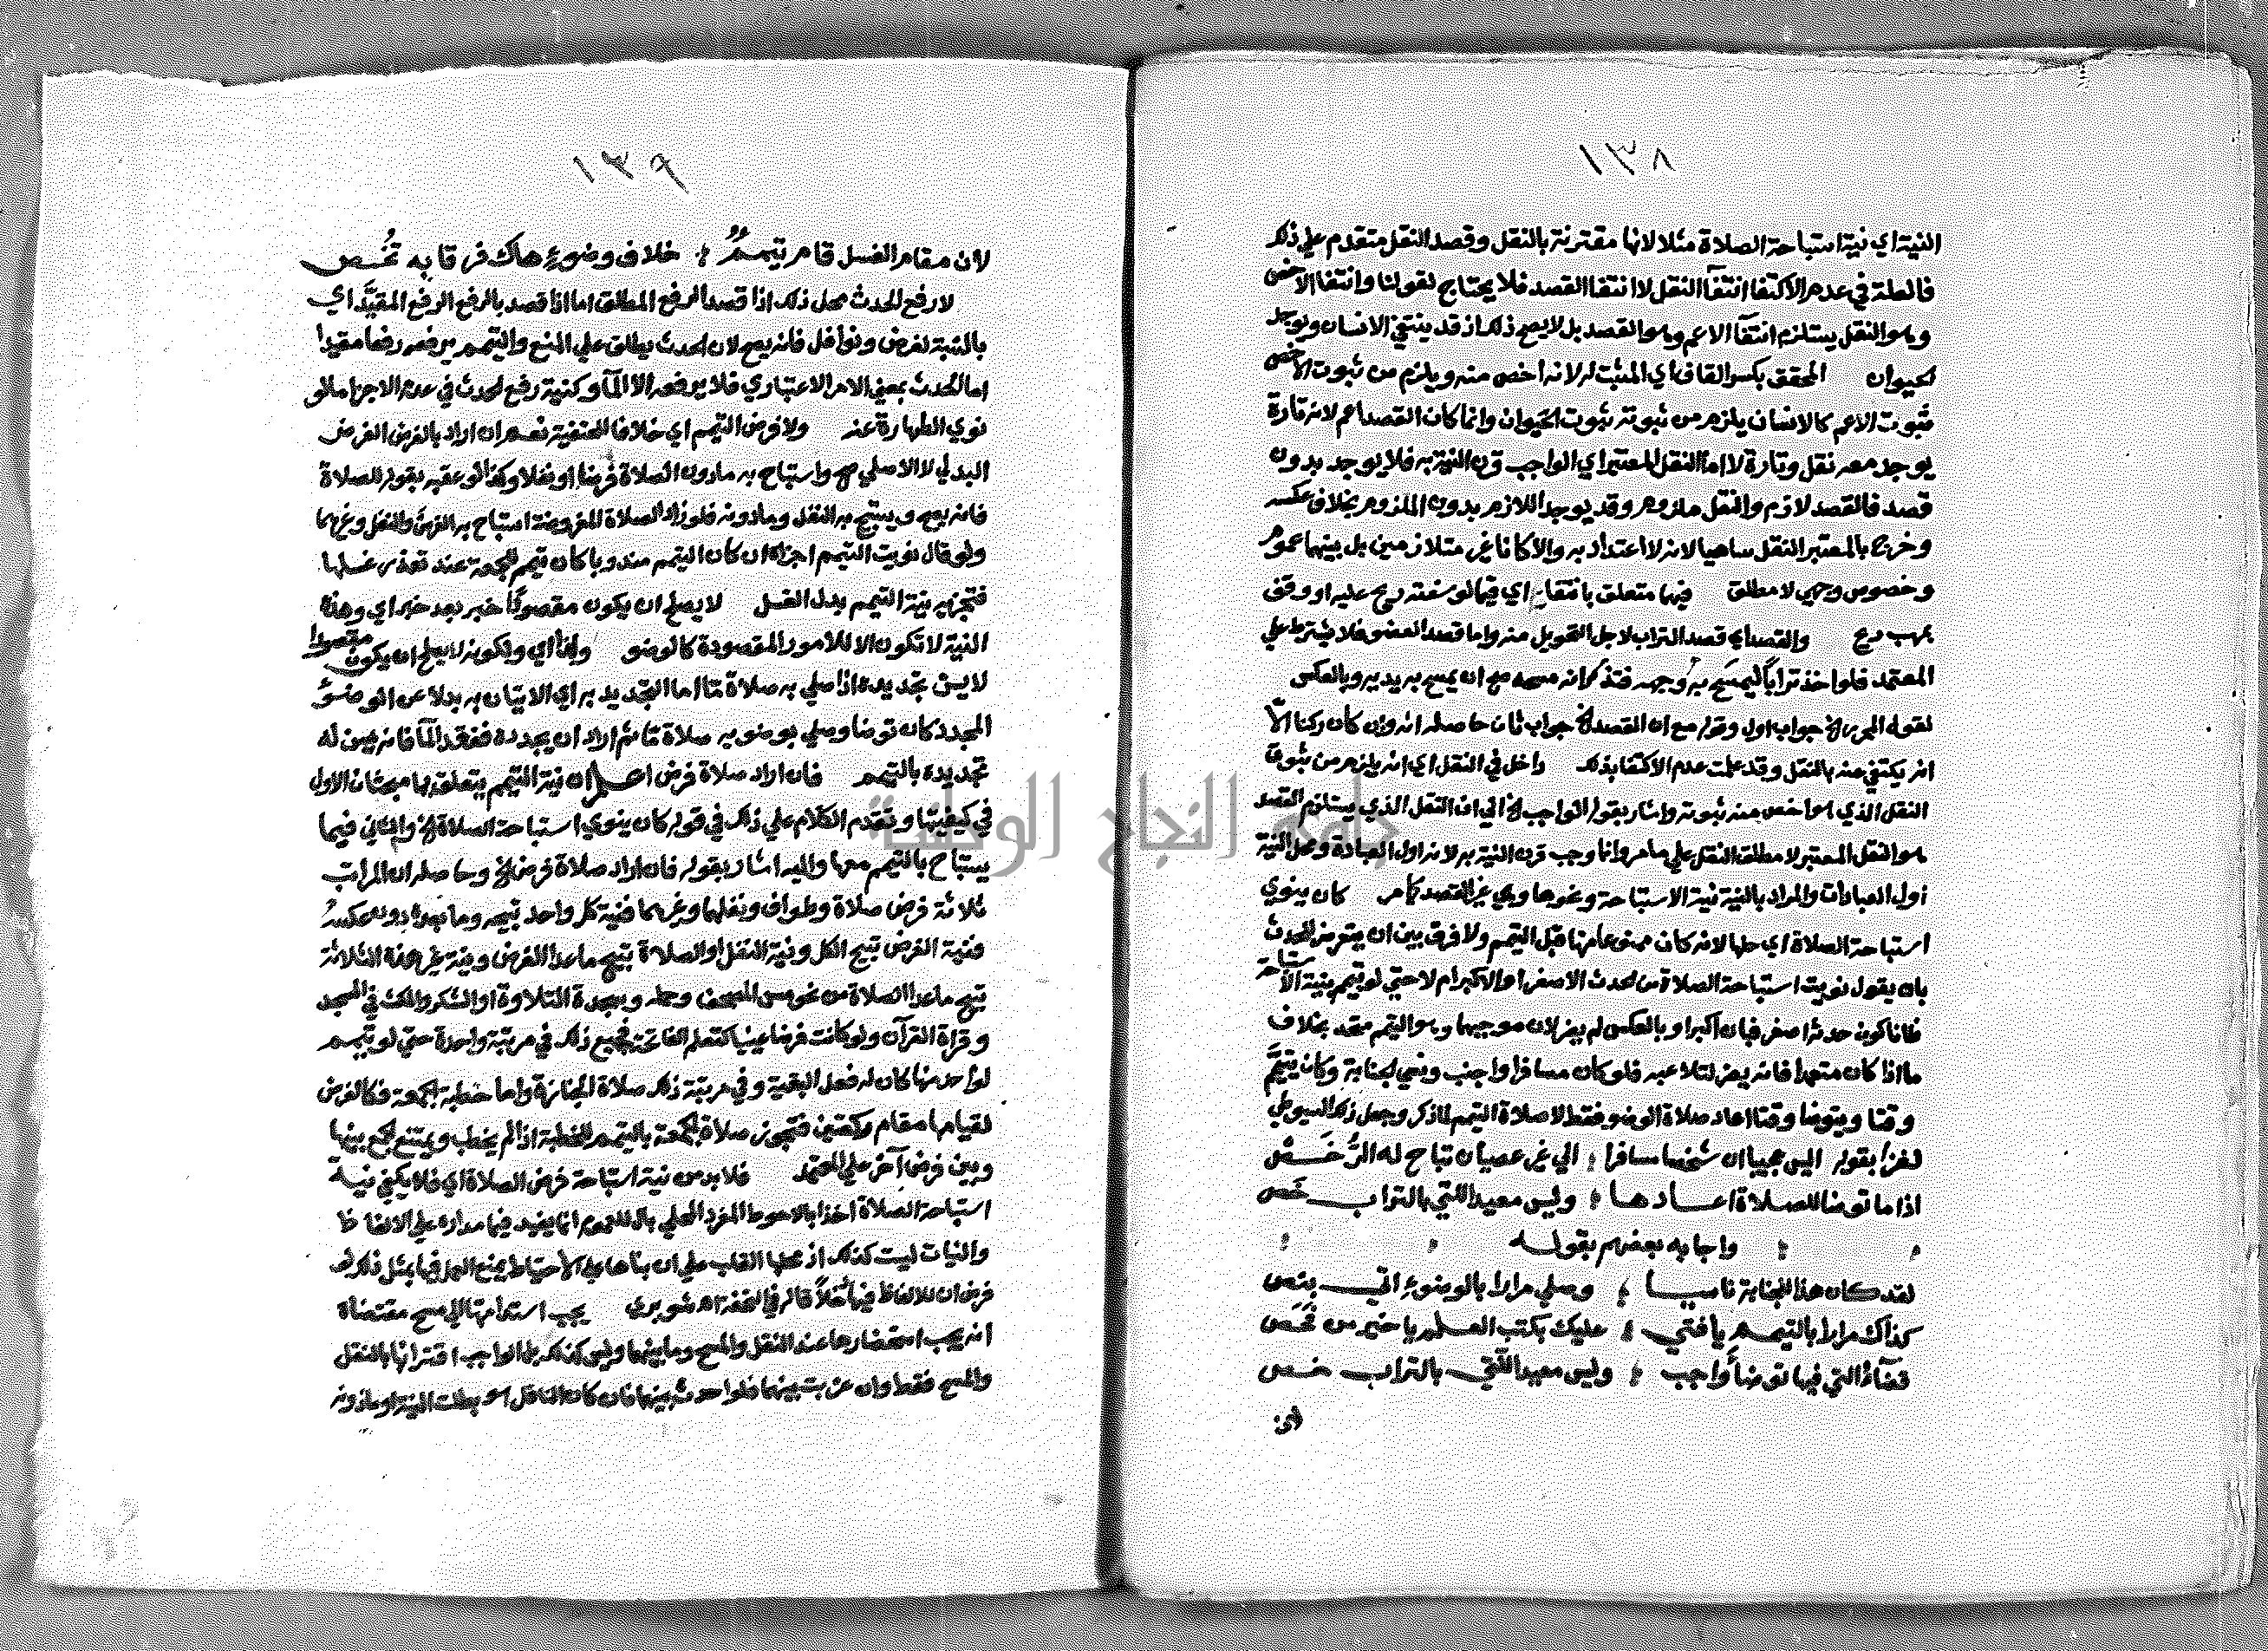 ١٣٨
النية اي نية استباحة الصلاة مثلا لانها مقترنة بالنقل وقصد النقل متقدم علي ذلك
فالعلة في عدم الاكتفا انتفآ النقل لا انتفا القصد فلا يحتاج لقولنا وانتفا الاخص
وهو النقل يستلزم انتفآ الاعم وهو القصد بل لا يصح ذلك اذ قد ينتفي الانسان ويوجد
الحيوان المحقق بكسر القاف اي المثبت له لانه اخص منه ويلزم من ثبوت الاخص
ثبوت الاعم كالانسان يلزم من ثبوته ثبوت الحيوان وانما كان القصد اعم لانه تارة
يوجد معه نقل وتارة لا اما النقل المعتبر اي الواجب قرن النية به فلا يوجد بدون
قصد فالقصد لازم والنقل ملزوم وقد يوجد اللازم بدون الملزوم بخلاف عكسه
وخرج بالمعتبر النقل ساهيا لانه لا اعتداد به والا كانا غير متلازمين بل بينهما عموم
وخصوص وجهي لا مطلق فيها متعلق بانتفاء اي فيما لو سفته ريح عليه او وقف
بمهب ريح والقصد اي قصد التراب لاجل التحويل منه واما قصد العضو فلا يشترط علي
المعتمد فلو اخذ ترابا ليمسح به وجهه فتذكر انه مسحه صح ان يمسح به يديه وبالعكس
لقوله المجري الخ جواب اول وقوله مع ان القصد الخ جواب ثان حاصله انه وان كان ركنا الا
انه يكتفي عنه بالنقل وقد علمت عدم الاكتفا بذلك داخل في النقل اي انه يلزم من ثبوت
النقل الذي هو اخص منه ثبوته واشار بقوله الواجب الخ الي ان النقل الذي يستلزم القصد
هو النقل المعتبر لا مطلق النقل علي ما مر وانما وجب قرن النية به لانه اول العبادة ومحل النية
اول العبادات والمراد بالنية نية الاستباحة ونحوها وهي غير القصد كما مر كان ينوي
استباحة الصلاة اي حلها لانه كان ممنوعا منها قبل التيمم ولا فرق بين ان يتعرض للحدث
بان يقول نويت استباحة الصلاة من الحدث الاصغر او الاكبر ام لا حتي لو تيمم بنية الاستباحة
ظانا كون حدثه اصغر فبان اكبر او بالعكس لم يضر لان موجبهما وهو التيمم متحد بخلاف
ما اذا كان متعمدا فانه يضر لتلاعبه فلو كان مسافرا واجنب ونسي الجنابة وكان يتيمم
وقتا ويتوضا وقتا اعاد صلاة الوضو فقط لا صلاة التيمم لما ذكر وجعل ذلك السيوطي
لغزا بقوله اليس عجيبا ان شخصا مسافرا ؛ الي غير عصيان تباح له الرخص
اذا ما توضا للصلاة اعادها ؛ وليس معيدا للتي بالتراب خص
واجابه بعضهم بقوله
لقد كان هذا للجنابة ناسيا ؛ وصلي مرارا بالوضوء اتي بنص
كذاك مرارا بالتيمم يا فتي ؛ عليك بكتب العلم يا خير من فحص
قضآء التي فيها توضا واجب ؛ وليس معيدا للتي بالتراب خص
لان
١٣٩
لان مقام الغسل قام تيمم ؛ خلاف وضوء هاك فرقا به تخص
لا رفع الحدث محل ذلك اذا قصد الرفع المطلق اما اذا قصد بالرفع الرفع المقيد اي
بالنسبة لفرض ونوافل فانه يصح لان الحدث يطلق علي المنع والتيمم يرفعه رفعا مقيدا
اما الحدث بمعني الامر الاعتباري فلا يرفعه الا المآ وكنية رفع الحدث في عدم الاجزا ما لو
نوي الطهارة عنه ولا فرض التيمم اي خلافا للحنفية نعم ان اراد بالفرض الفرض
البدلي لا الاصلي صح واستباح به ما دون الصلاة فرضا او نفلا وكذا لو عقبه بقوله للصلاة
فانه يصح ويستبيح به النفل وما دونه فلو زاد الصلاة المفروضة استباح به الفرض والنفل وغيرهما
ولو قال نويت التيمم اجزاه ان كان التيمم مندوبا كان تيمم للجمعة عند تعذر غسلها
فتجزيه نية التيمم بدل الغسل لا يصلح ان يكون مقصودا خبر بعد خبر اي وهذه
النية لا تكون الا للامور المقصودة كالوضو ولهذا اي ولكونه لا يصلح ان يكون مقصودا
لا يسن تجديده اذا صلي به صلاة مّا اما التجديد به اي الاتيان به بدلا عن الوضوء
المجدد كان توضا وصلي بوضويه صلاة مّا ثم اراد ان يجدده ففقد المآ فانه يسن له
تجديده بالتيمم فان اراد صلاة فرض اعلم ان نية التيمم يتعلق بها مبحثان الاول
في كيفيتها وتقدم الكلام علي ذلك في قوله كان ينوي استباحة الصلاة الخ والثاني فيما
يستباح بالتيمم معها واليه اشار بقوله فان اراد صلاة فرض الخ وحاصله ان المراتب
ثلاثة فرض صلاة وطواف ونفلهما وغيرهما فنية كل واحد تبيحه وما بعده دون عكسه
فنية الفرض تبيح الكل ونية النفل او الصلاة تبيح ما عدا الفرض ونية غير هذه الثلاثة
تبيح ما عدا الصلاة من نحو مس المصحف وحمله وسجدة التلاوة او الشكر والمكث في المسجد
وقراة القرآن ولو كانت فرضا عينيا كتعلم الفاتحة فجميع ذلك في مرتبة واحدة حتي لو تيمم
لواحد منها كان له فعل البقية وفي مرتبة ذلك صلاة الجنازة واما خطبة الجمعة فكالفرض
لقيامها مقام ركعتين فتجوز صلاة الجمعة بالتيمم للخطبة اذا لم يخطب ويمتنع الجمع بينها
وبين فرض آخر علي المعتمد فلا بد من نية استباحة فرض الصلاة اي فلا يكفي نية
استباحة الصلاة اخذا بالاحوط المفرد المحلي بال للعموم انما يفيد فيما مداره علي الالفاظ
والنيات ليست كذلك اذ محلها القلب علي ان بناها علي الاحتياط يمنع العمل فيها بمثل ذلك لو
فرض ان للالفاظ فيها دخلا قاله في التحفة اه شوبري يجب استدامتها الي مسح مقتضاه
انه يجب استحضارها عند النقل والمسح وما بينهما وليس كذلك بل الواجب اقترانها بالنقل
والمسح فقط وان عزبت بينهما فلو احدث بينهما فان كان الناقل هو بطلت النية او ماذونه